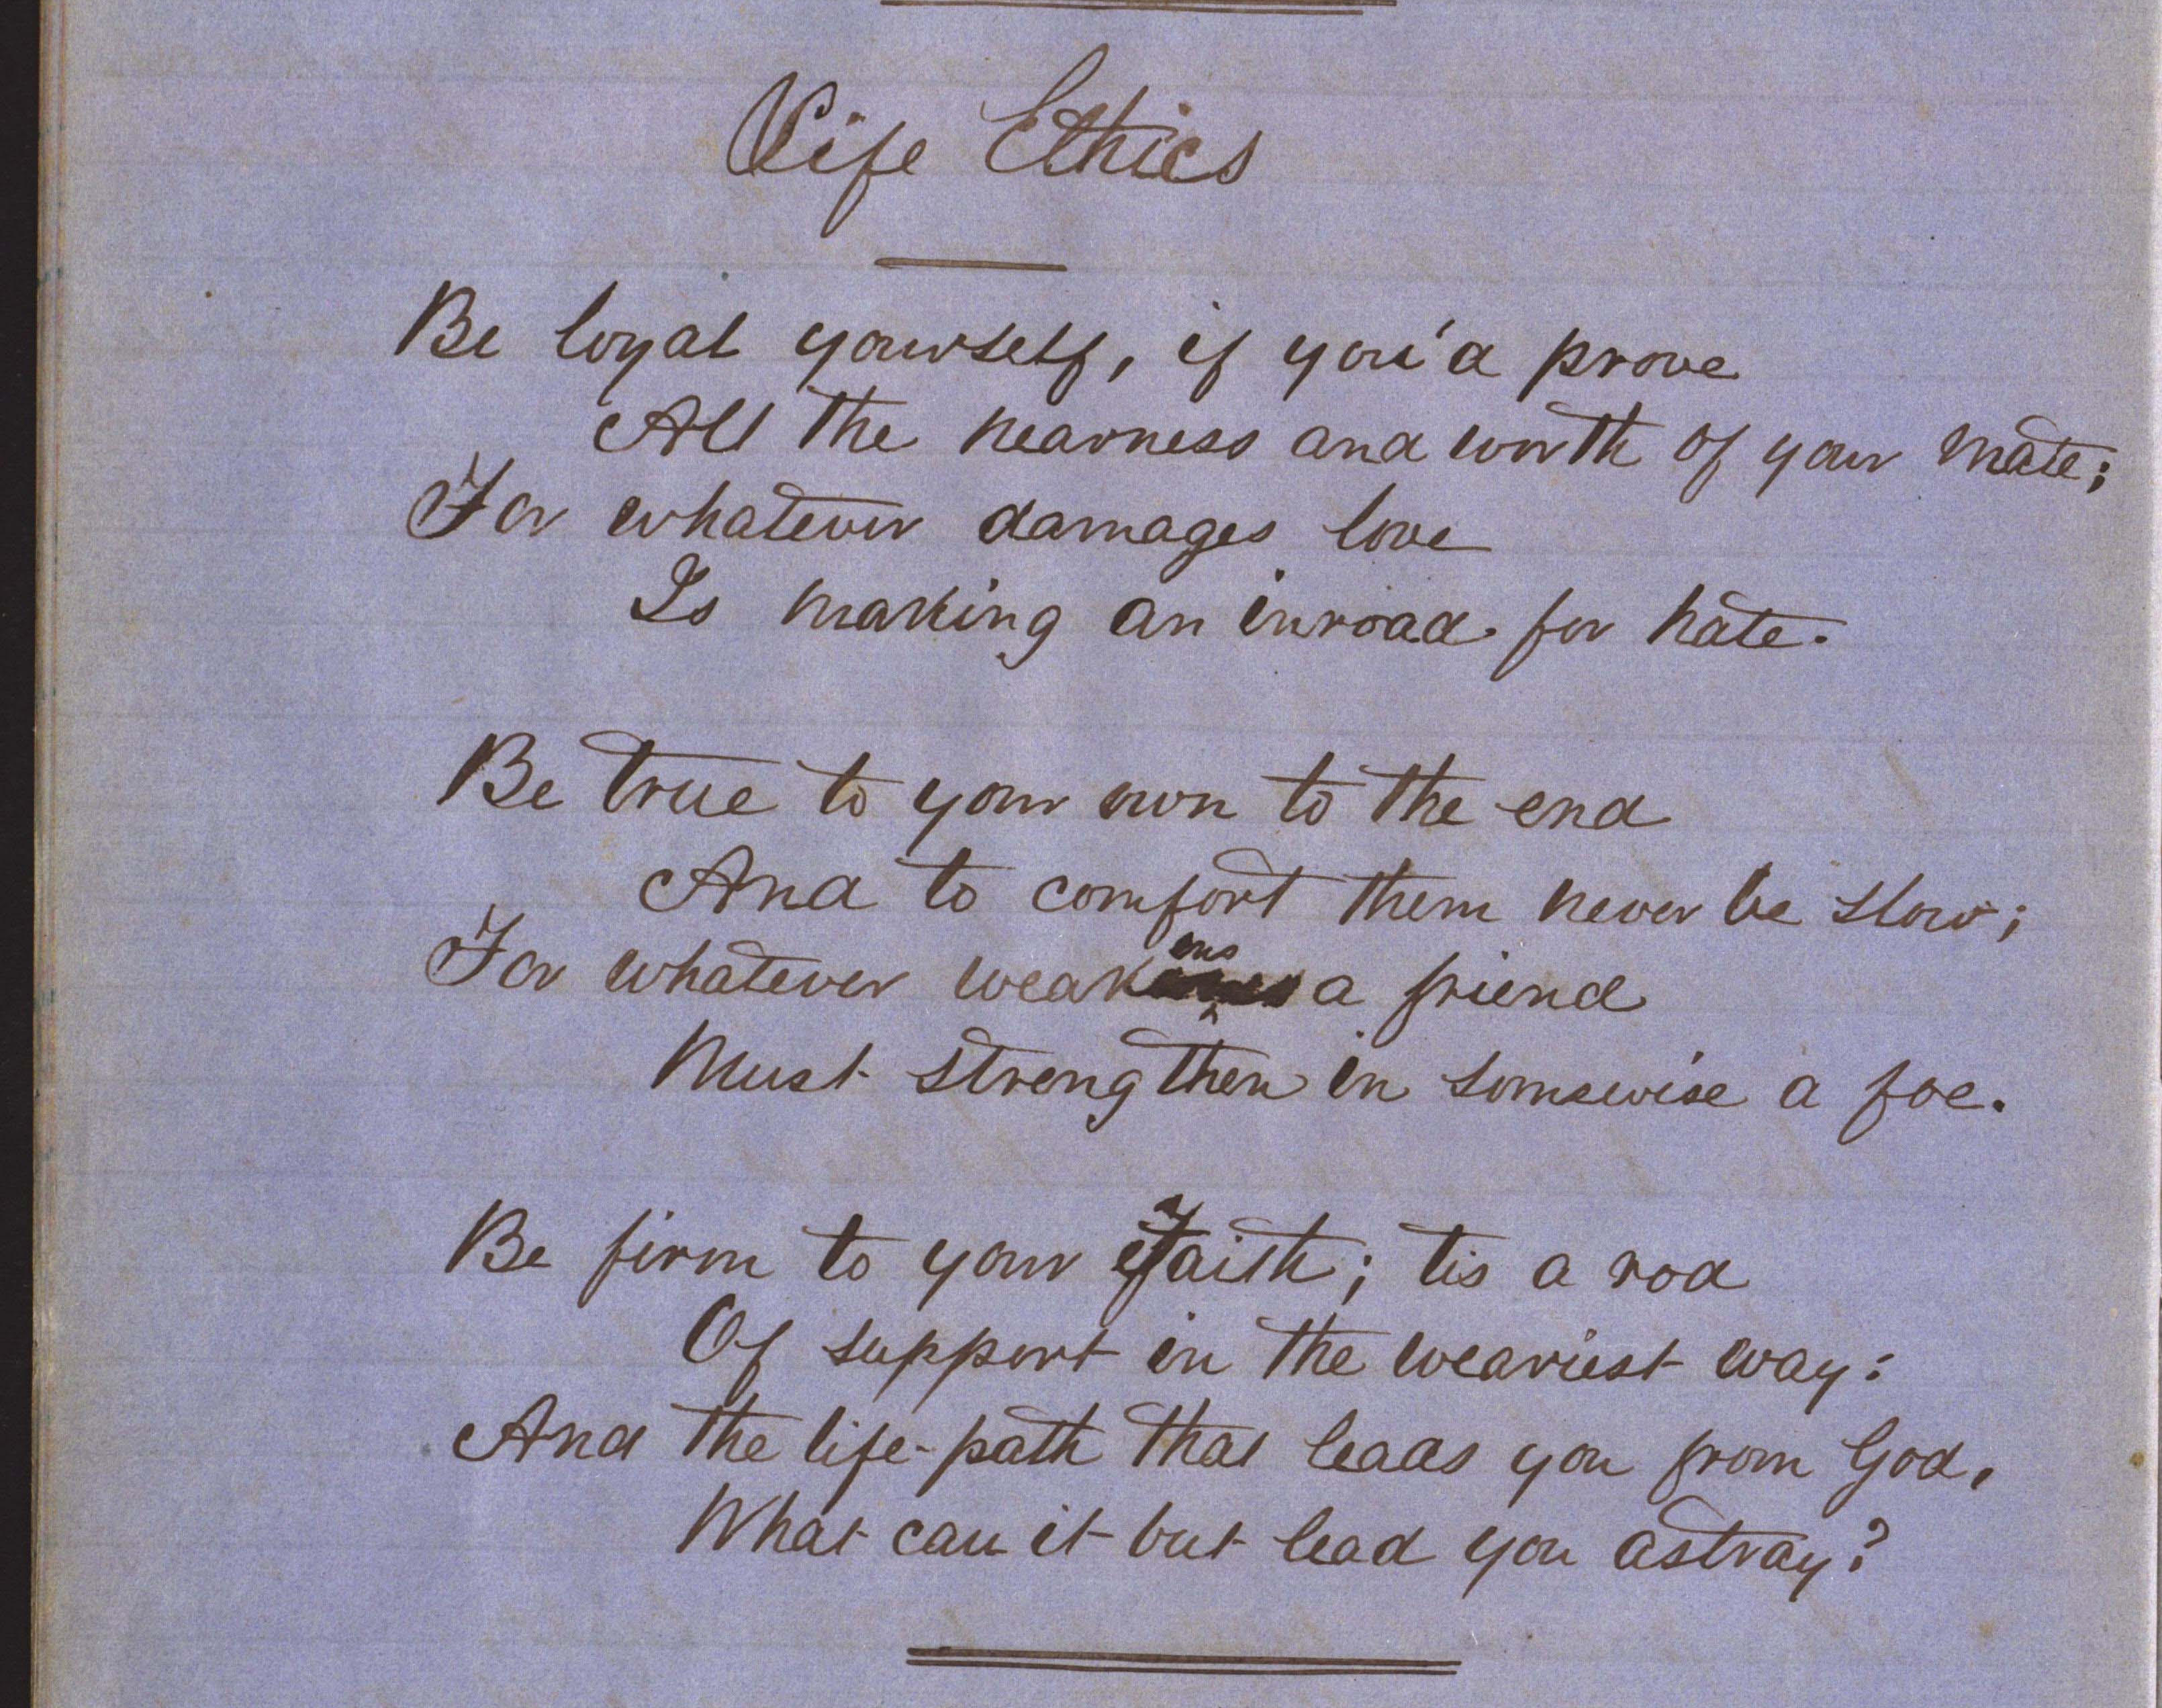 Life Ethics
Be loyal yourself, if you'd prove
All the nearness and worth of your mate;
For whatever damages love
Is making an inroad for hate.
Be true to your own to the end
And to comfort them never be slow;
For whatever weakens a friend
Must strengthen in somewise a foe.
Be firm to your Faith; tis a rod
Of support in the weariest way:
And the life-path that leads you from God,
What can it but lead you astray?